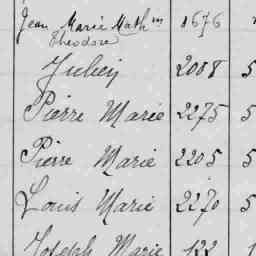 Jean Marie Math in 1676
Theodore
Julien 2008 5
Pierre Marie 2275 5
Pierre Marie 2205 5
Louis Marie 2270 5
Joseph Marie 122 1